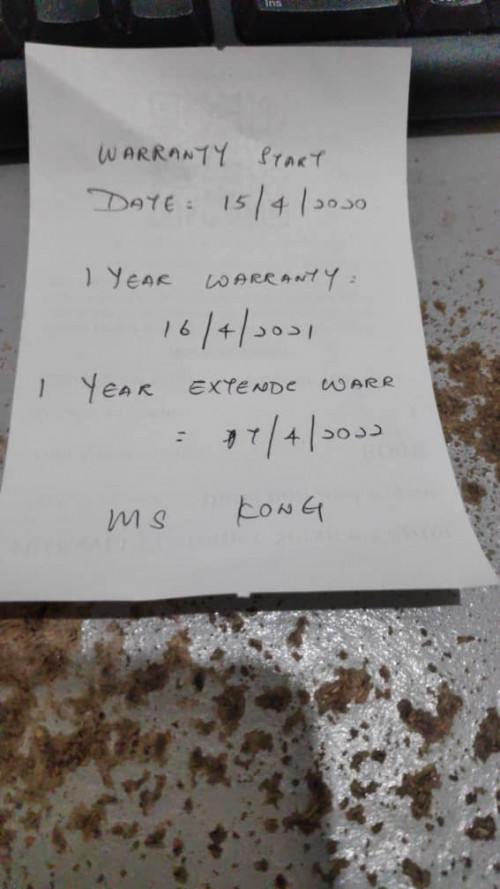 Ins
WARRANTY START
DATE: 15/4/2020
1 YEAR WARRANTY:
16/4/2021
1 YEAR EXTENDE WARR
= 17/4/2022
MS KONG